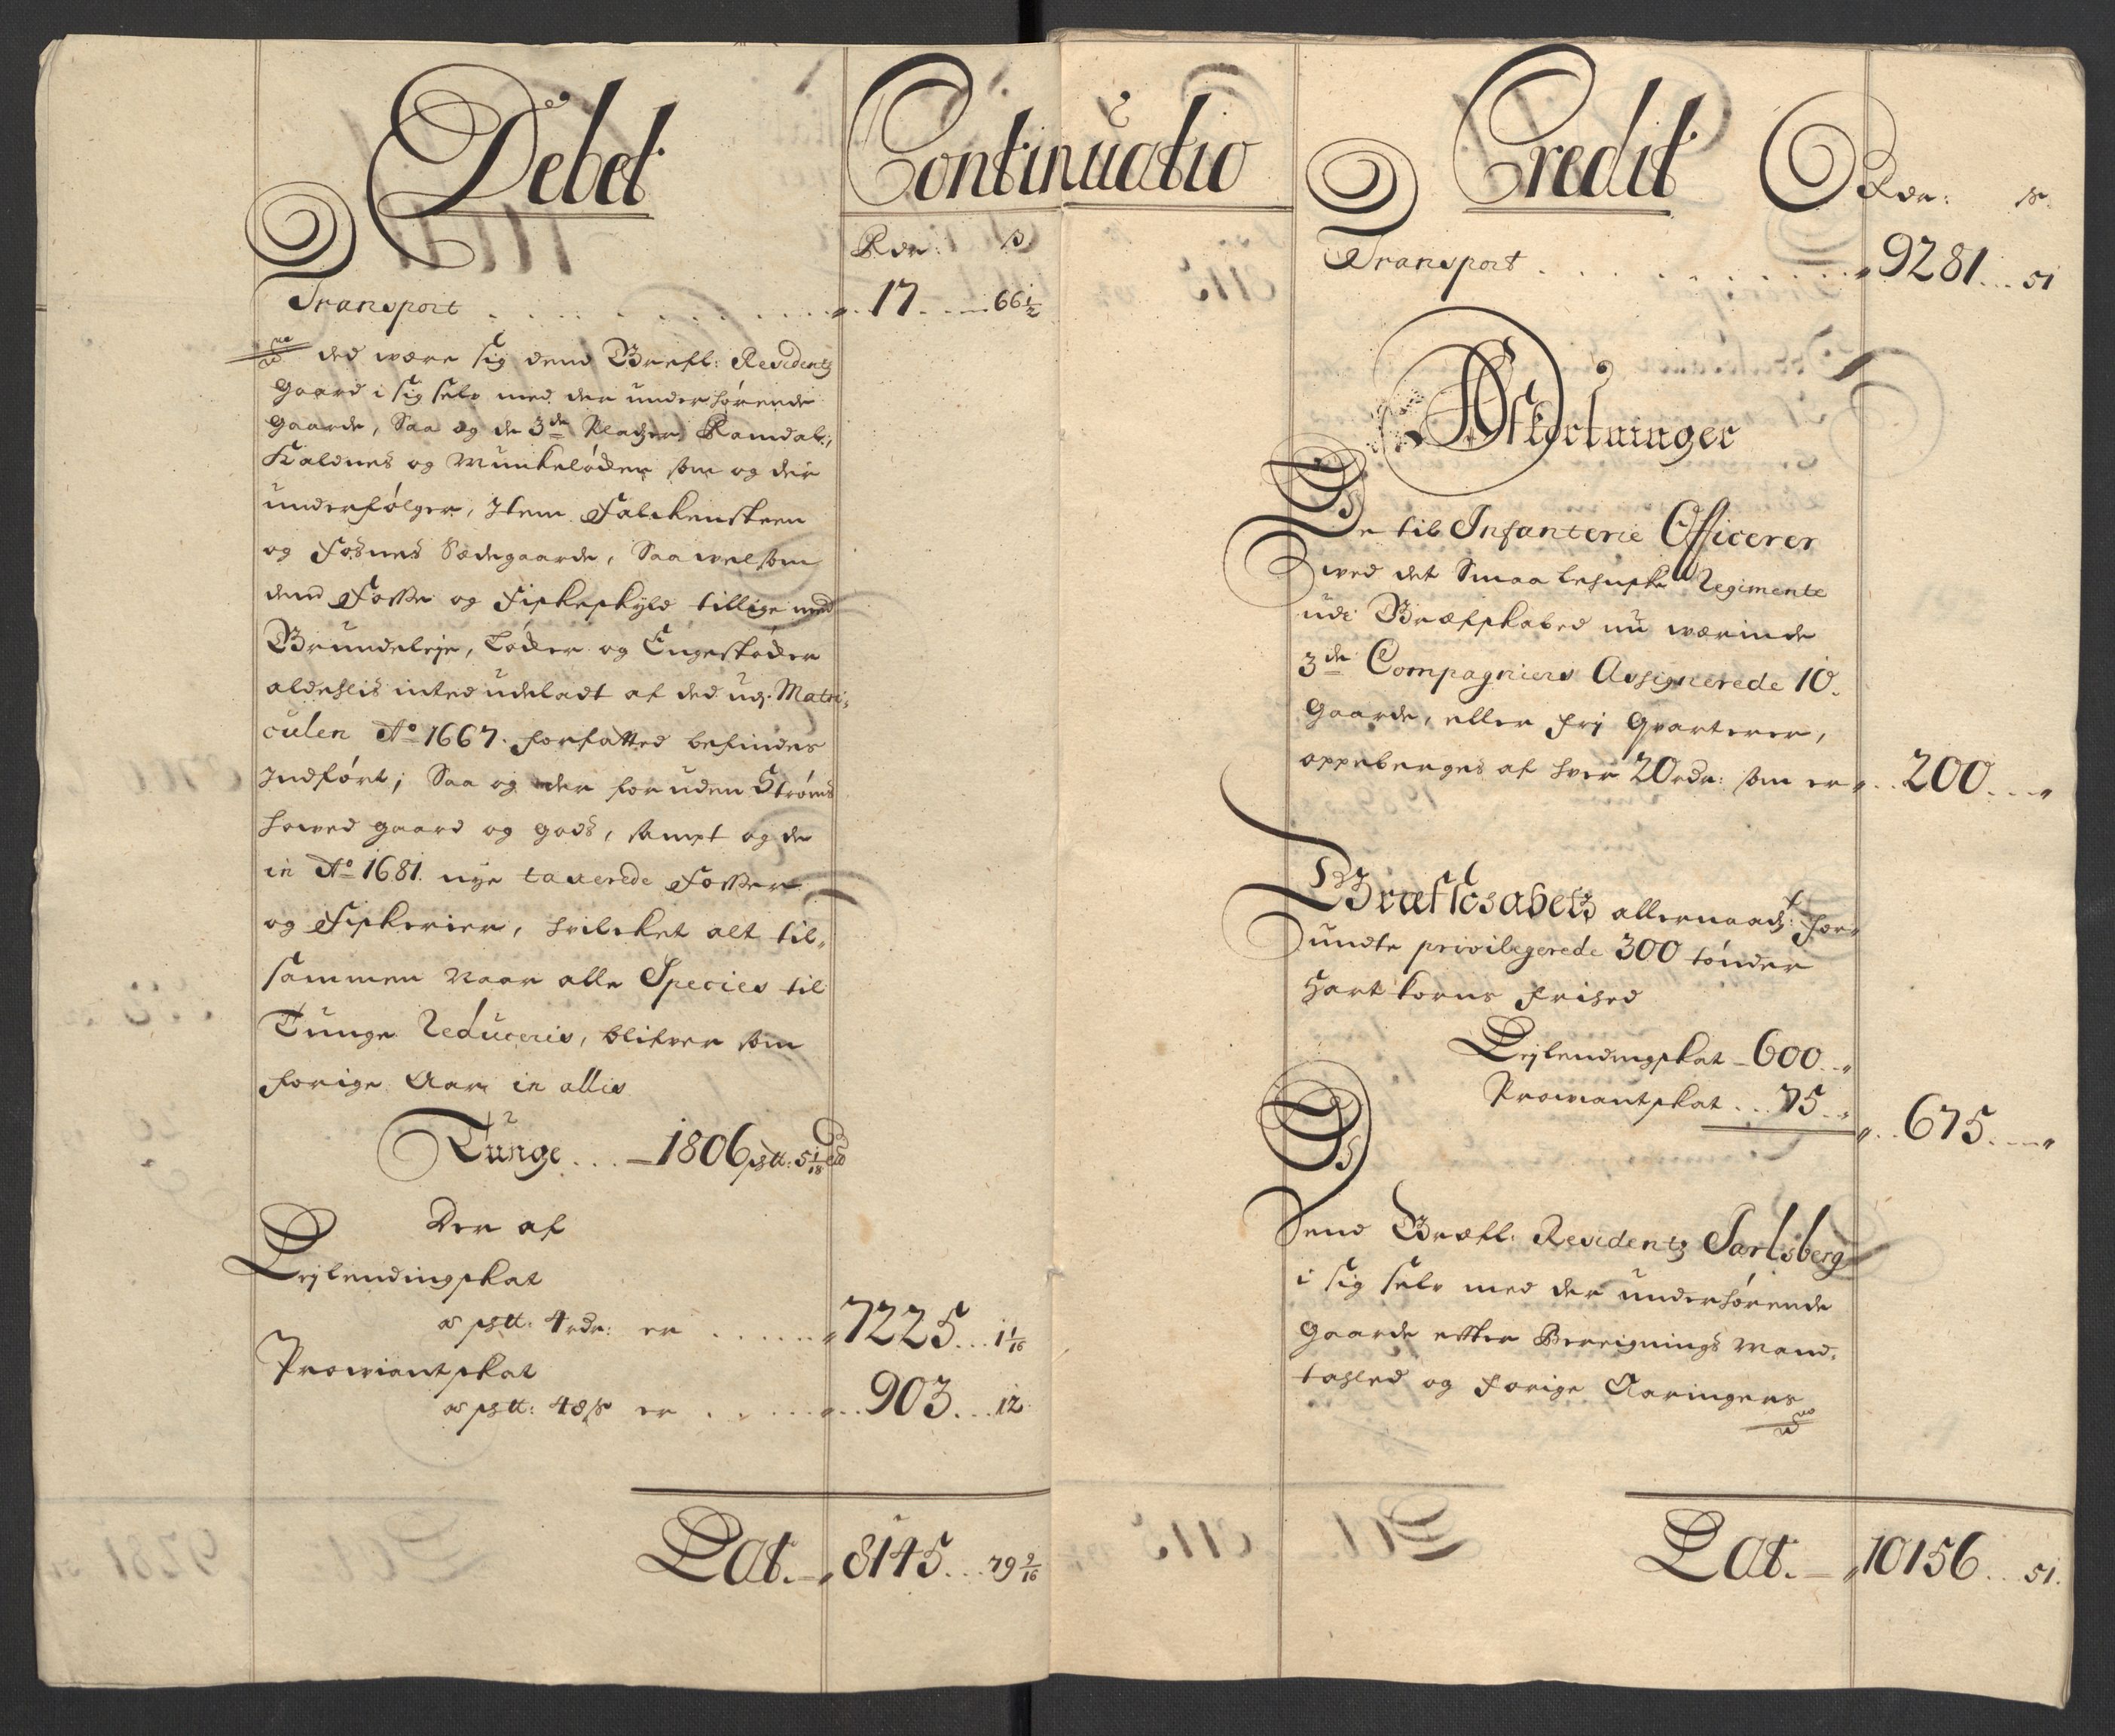 Debet
Continuatio
Rdr: ß
Transport . . . . . . . . . . 17 . . . 66½
ded være sig dend Grefl: Residentz
Gaard i sig selv med der underhørende
Gaarde, Saa og de 3de Pladzer, Ramdal,
Kaldnes og Munkeløcken som og der
underfølger, Item Falckensteen
og Fosnes Sædegaarde, Saavelsom
dend Fosse og Fiskeskyld tillige med
Grundeleje, Løcker og Engestøcker
aldehlis inted udeladt af ded udj Matri,
culen Ao 1667. forfatted befindes
Indført; Saa og der foruden Strøms
hoved gaard og gods, sampt og de
in Ao 1681. nye taxerede Fosser
og Fiskerier, hvilcket alt til,
sammen Naar alle Species til
Tunge Reduceris, blifver som
forige Aar in alles
Tunge . . . 1806 pkt: 5 1/18
Der af
Lejlendingskat
a pktt: 4 rdr: er . . . . . 7225 . . 1 1/16
Proviantskat
a pktt: 48 ß er . . . . . 903 . . . 12
Lat. 8145 . . . 79 9/16
Credit
Rdr: ß
Transport . . . . . . . . . 9281 . . . 51
Afkortninger
De til Infanterie Officerer
ved det Smaalehnske Regimente
udi Græfskabed nu værende
3de Compagniers Assignerede 10.
Gaarde, eller frj Qvarterer,
oppeberges af hver 20 rdr: som er . . 200 . . .
Græfskabetz allernaadst: for,
undte privilegerede 300 tønder
Hartkorns frihed
Lejlendingskat – 600 . .
Proviantskat . . . 75 . .
675 . . .
Dend Græfl: Residentz Jarlsberg
i sig selv med der underhørende
Gaarde efter Bereignings Mand,
tahled og forige Aaringers
Lat. 10156 . . 51.